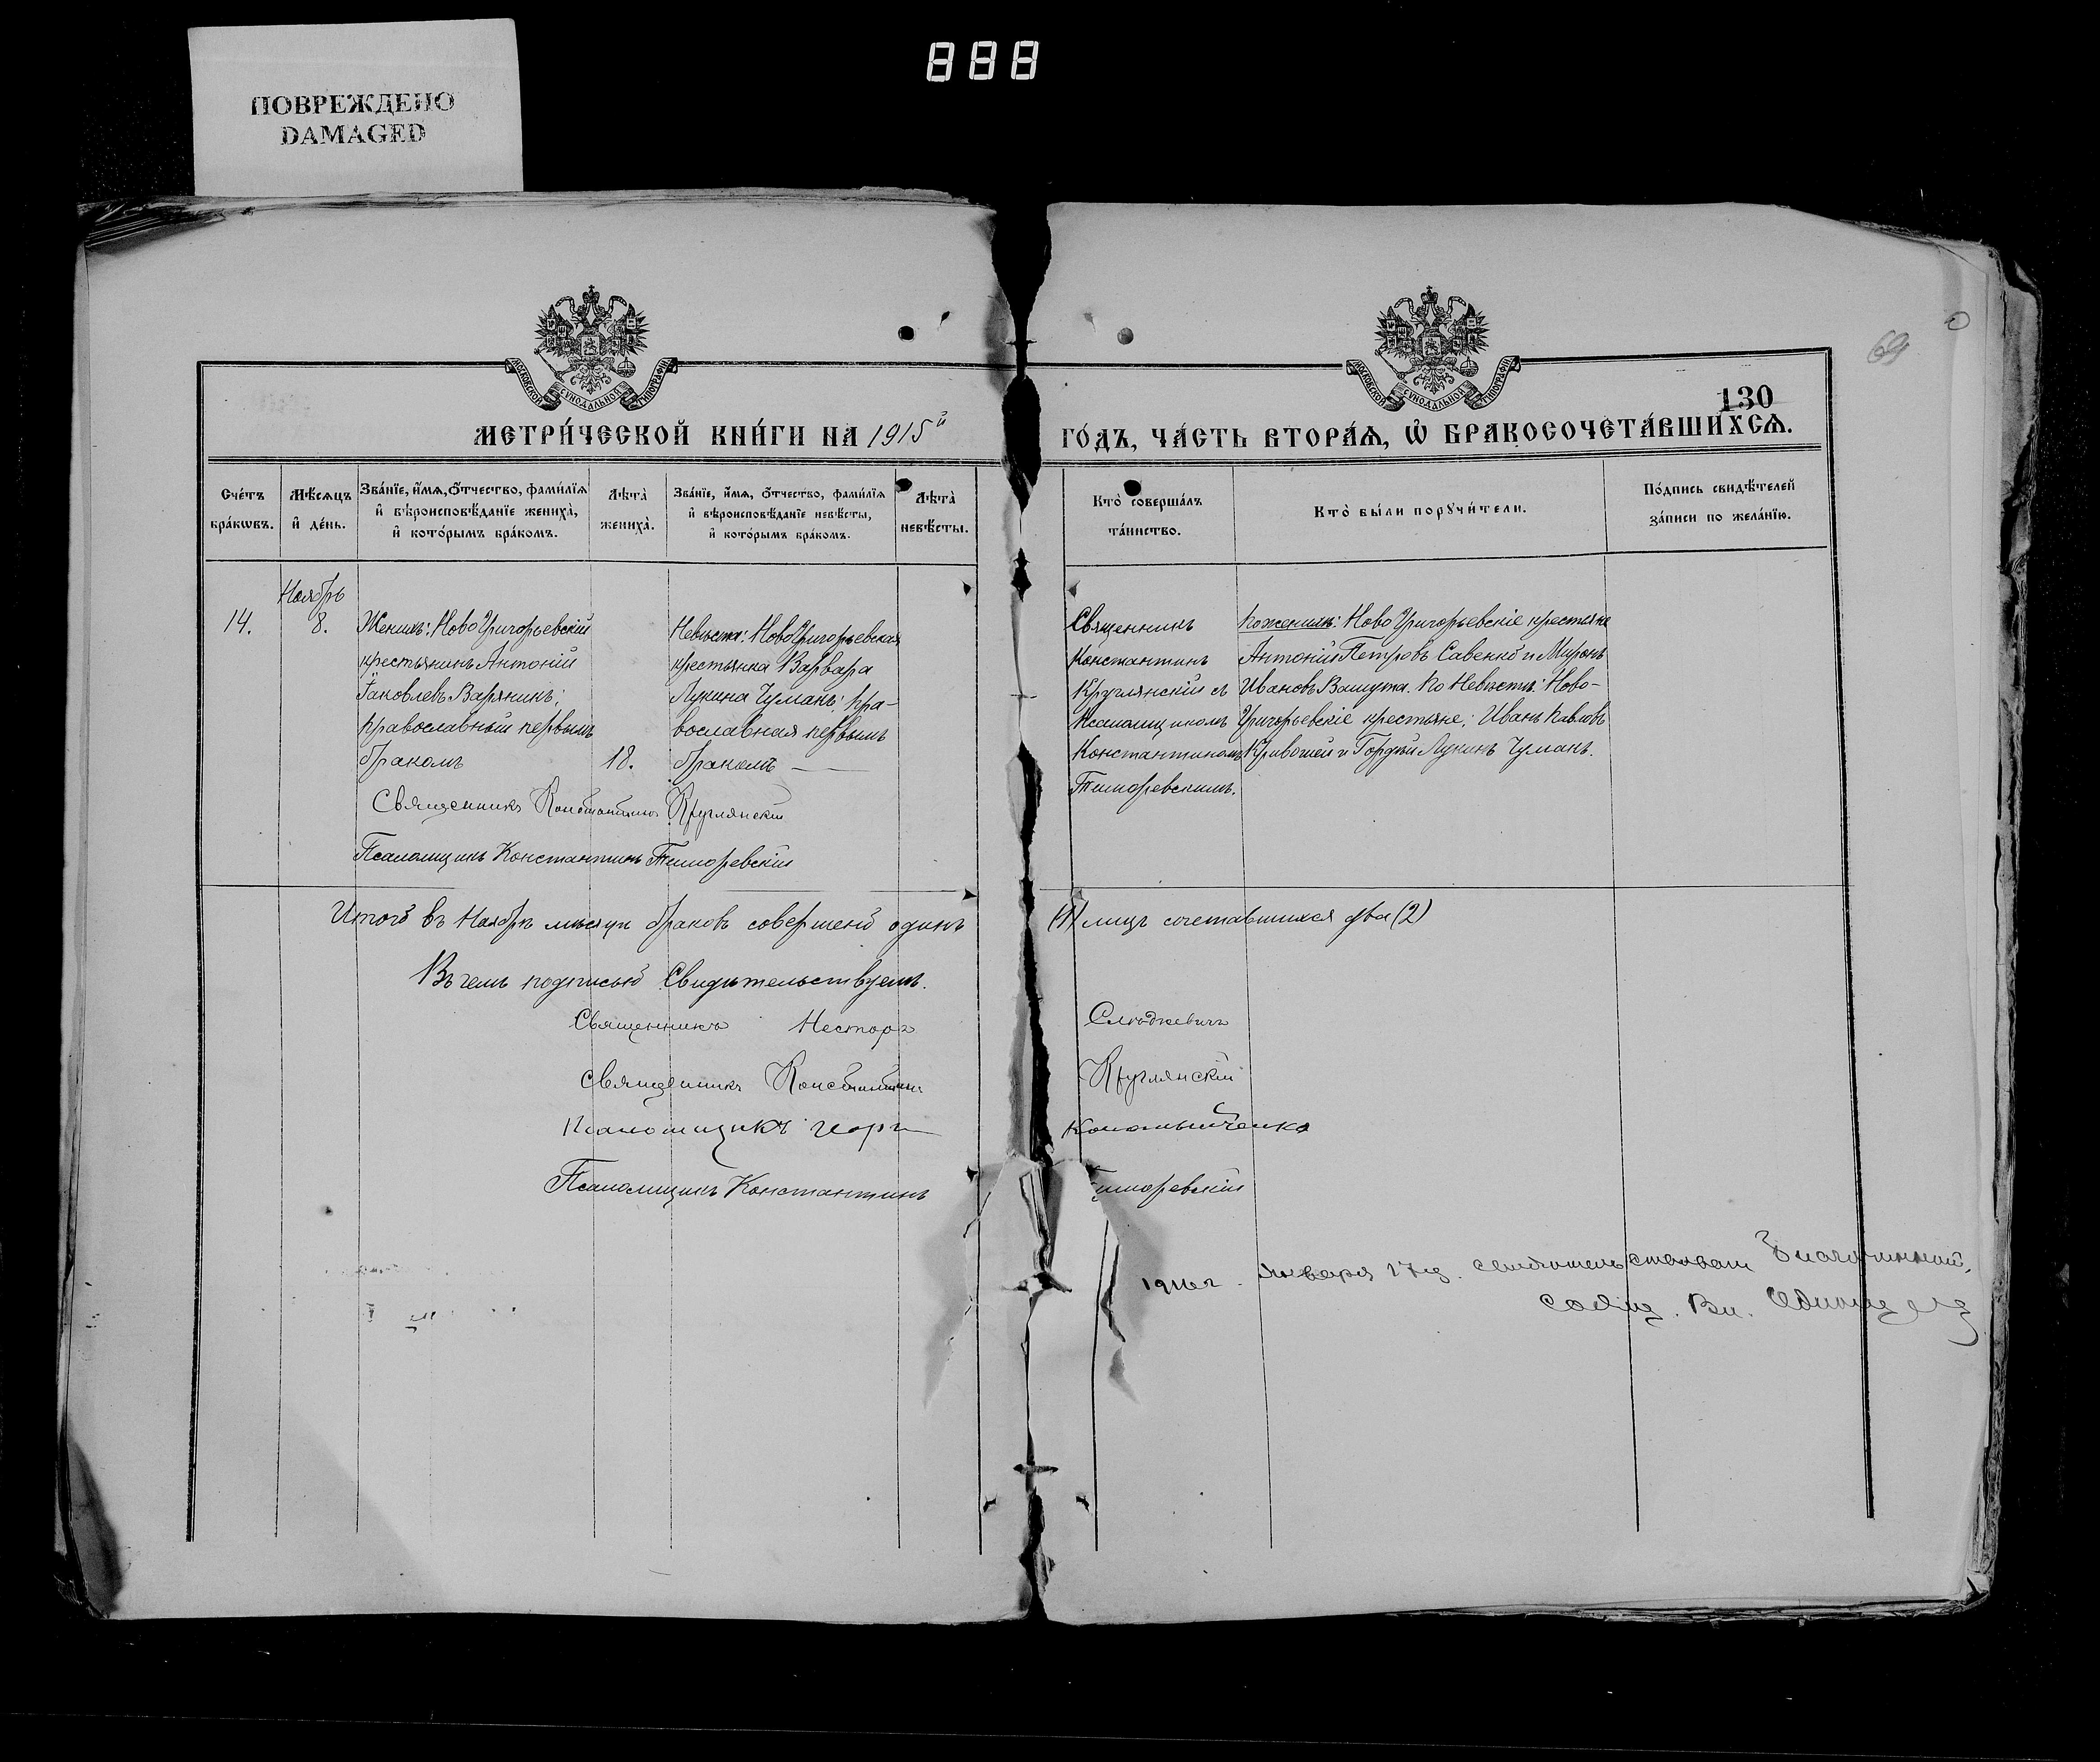 888
ПОВРЕЖДЕНО
DAMAGED
МОСКОВСКОЙ СѴНОДАЛЬНОЙ ТИПОГРАФІИ
МОСКОВСКОЙ СѴНОДАЛЬНОЙ ТИПОГРАФІИ
69
130
МЕТРИ́ЧЕСКОЙ КНИ́ГИ НА 1915й
ГО́ДЪ, ЧА́СТЬ ВТОРА́Ѧ, Ѡ҆ БРАКОСОЧЕТА́ВШИХСѦ.
Сче́тъ бра́кѡвъ.
Мѣ́сѧцъ и҆ де́нь.
Зва́нїе, и҆́мѧ, ѻ҆́тчество, фами́лїѧ и҆ вѣроисповѣ́данїе жениха̀, и҆ кото́рымъ бра́комъ.
Лѣта̀ жениха̀.
Зва́нїе, и҆́мѧ, ѻ҆́тчество, фами́лїѧ и҆ вѣроисповѣ́данїе невѣ́сты, и҆ кото́рымъ бра́комъ.
Лѣта̀ невѣ́сты.
Кто̀ соверша́лъ та́инство.
Кто̀ бы́ли порꙋчи́тели.
По́дпись свидѣ́телей за́писи по жела́нїю.
14.
Ноябрь
8.
Женихъ: НовоГригорьевскій
крестьянинъ Антоній
Іаковлевъ Варяникъ;
православный первымъ
бракомъ
18.
Невѣста: НовоГригорьевская
крестьянка Варвара
Лукина Чуманъ; пра-
вославная первымъ
бракомъ
Священникъ
Константинъ
Круглянскій съ
Псаломщикомъ
Константиномъ
Тиморевскимъ.
По женихѣ: НовоГригорьевскіе крестьяне
Антоній Петровъ Савенко и Миронъ
Ивановъ Вашута. По Невѣстѣ: Ново-
Григорьевскіе крестьяне: Иванъ Павловъ
Кривошей и Гордѣй Лукинъ Чуманъ.
Священникъ Константинъ Круглянскій
Псаломщикъ Константинъ Тиморевскій
Итого въ Ноябрѣ мѣсяцѣ браковъ совершено одинъ (1) лицъ сочетавшихся два (2)
Въ чемъ подписью Свидѣтельствуемъ.
Священникъ Несторъ
Священникъ Константинъ Круглянскій
Псаломщикъ Георгій Коломыйченко
Псаломщикъ Константинъ Тиморевскій
1916 г. Января 17 д. свидѣтельствовалъ Благочинный,
Вл.